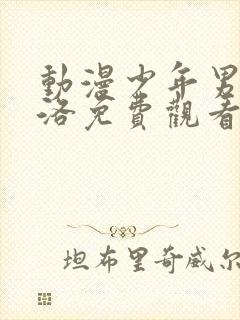 動漫少年男
洛免費觀看
坦布里奇威尔